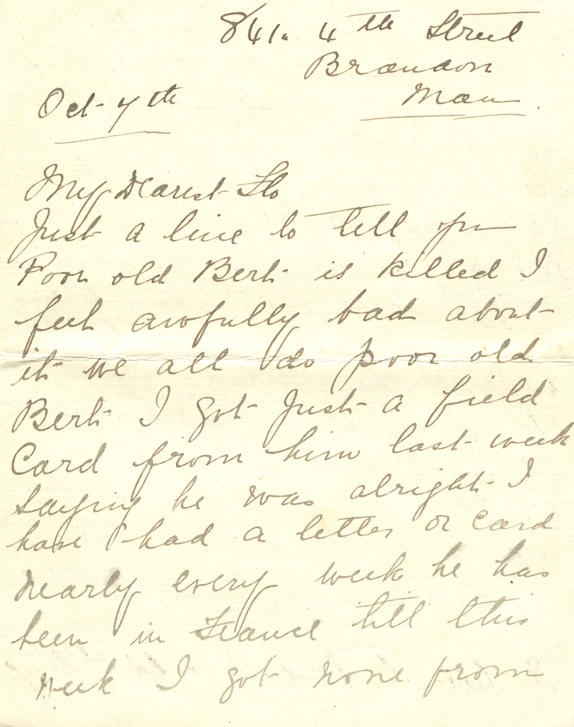 841. 4th Street
Brandon
Man.
Oct 7th
My Dearest Flo
Just a line to tell you
Poor old Bert is killed I
feel awfully bad about
it we all do poor old
Bert I got just a field
Card from him last week
saying he was alright I
have had a letter or card
nearly every week he has
been in France till this
week I got none from